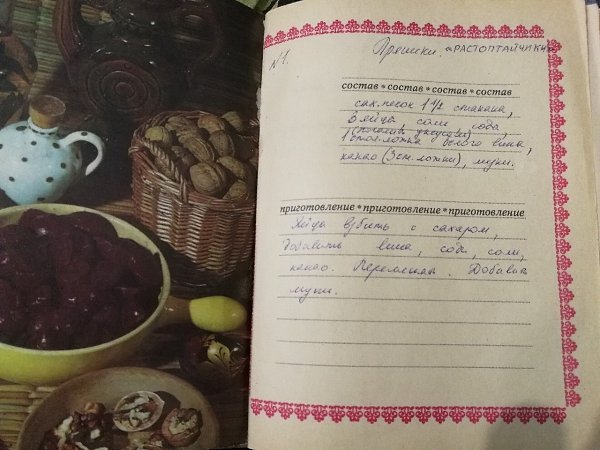 №1. Пряники. «РАСТОПТАЙЧИКИ»
состав * состав * состав * состав
сах. песок 1 1/2 стакана,
3 яйца, соли, сода,
(погасить уксусом)
1 стол. ложка белого вина,
какао (3 ст. ложки), муки.
приготовление * приготовление * приготовление
Яйца взбить с сахаром,
добавить вина, сода, соли,
какао. Перемешать. Добавить
муки.